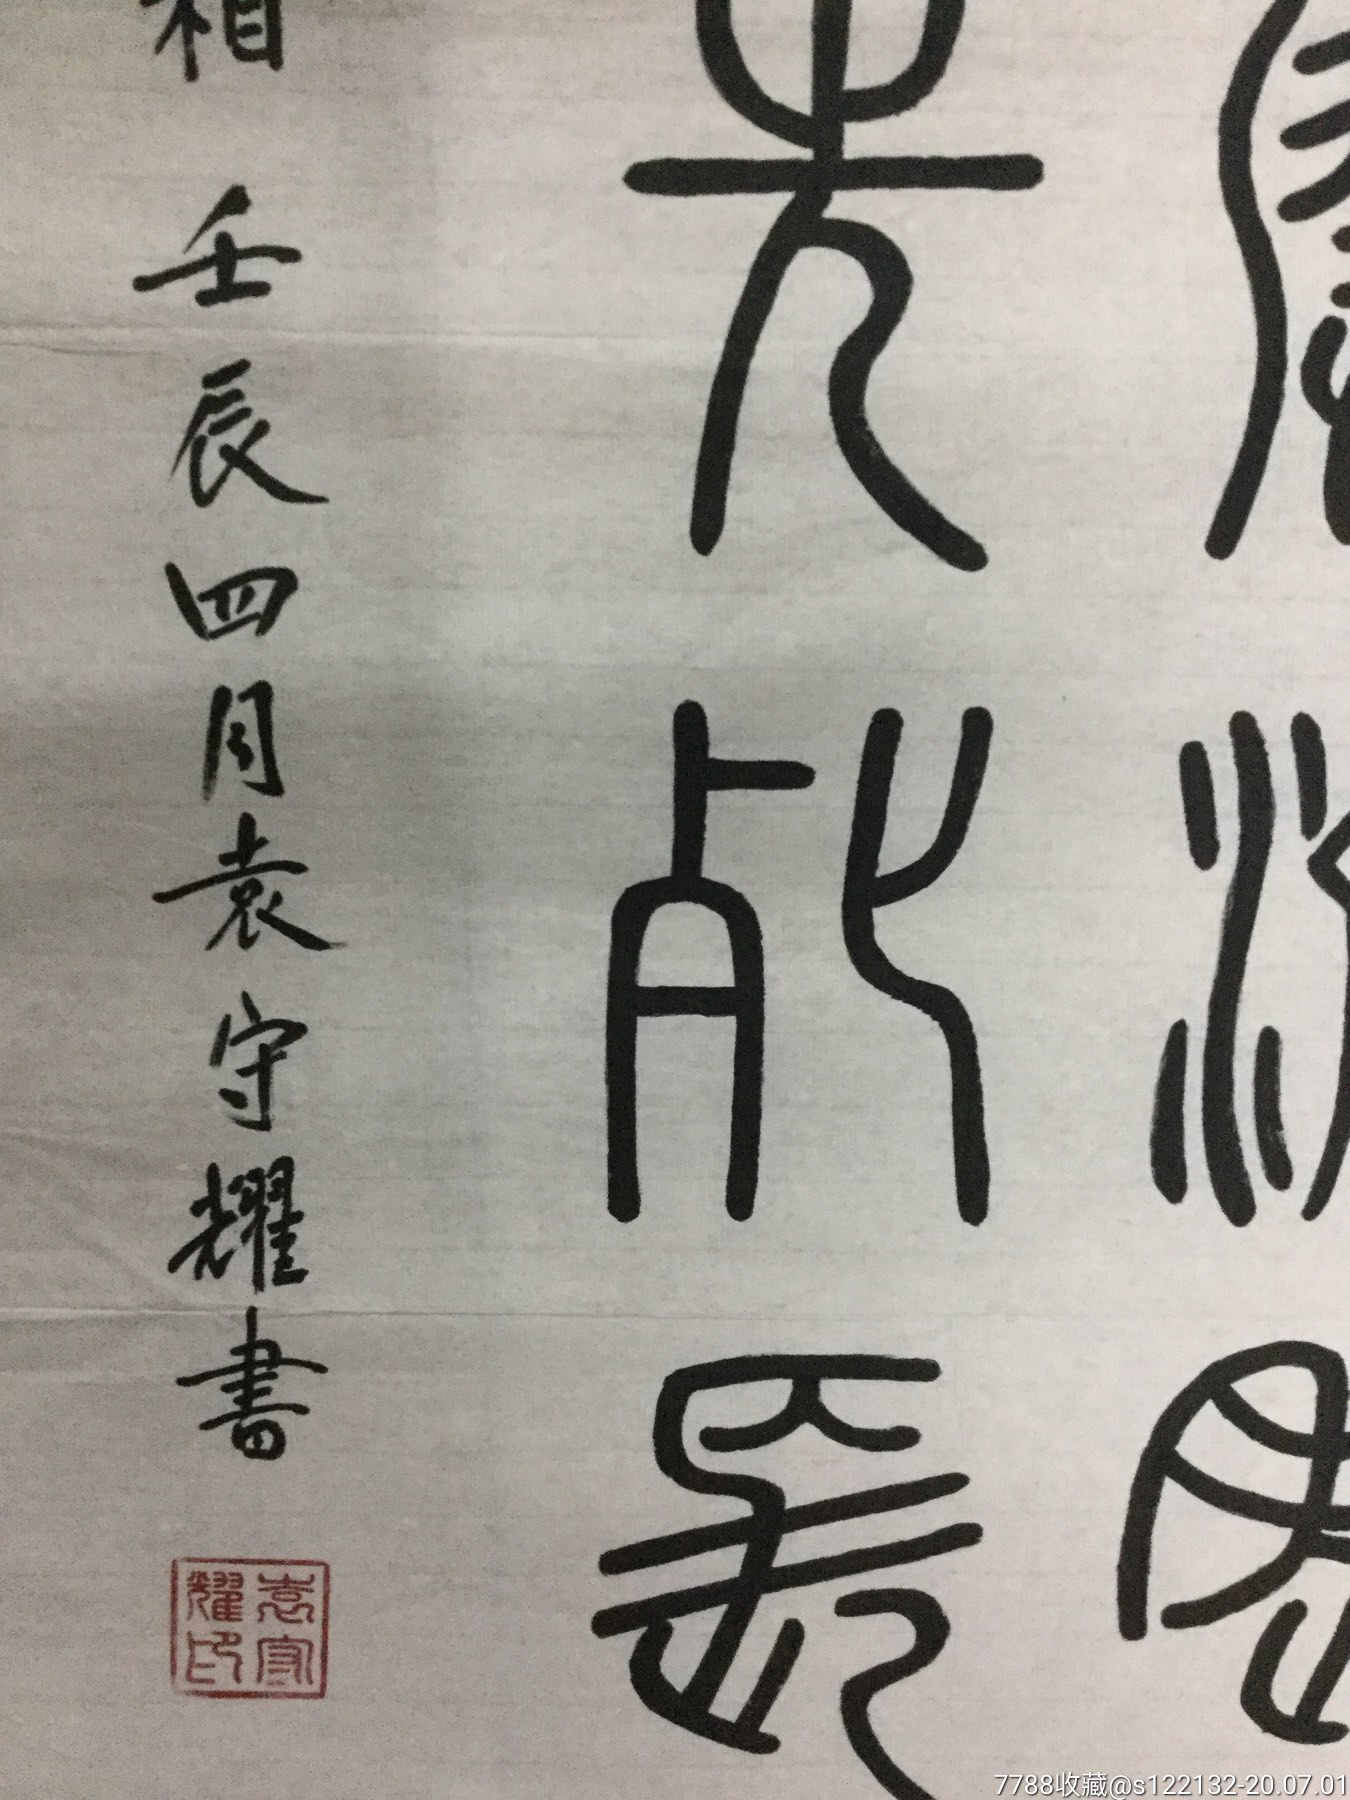 先死長
相 壬辰四月袁守耀書
袁守
耀印
7788收藏@s122132-20.07.01